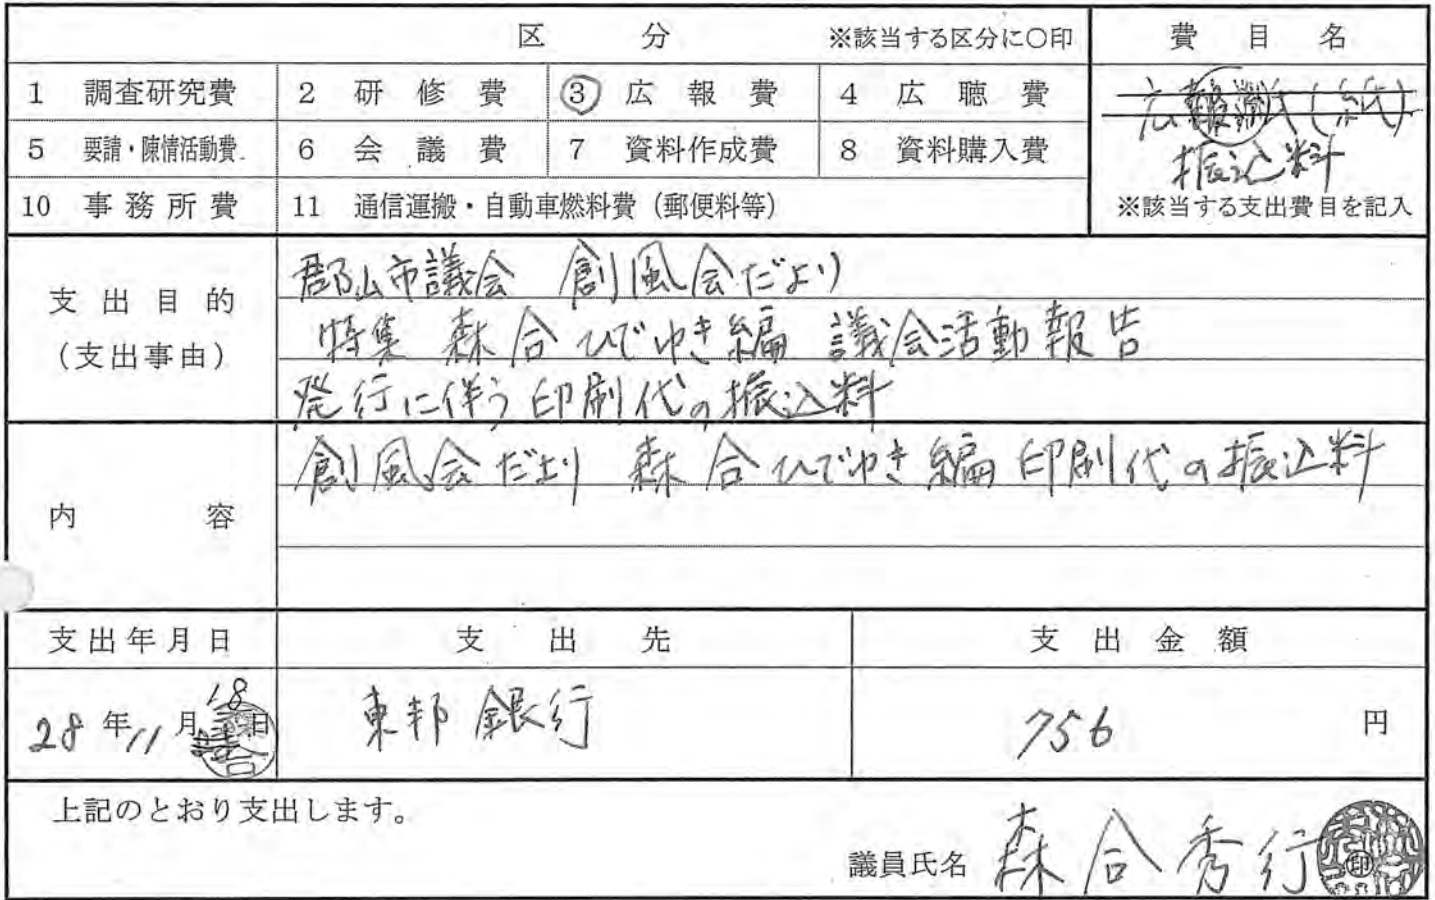 区 分 ※該当する区分に○印 費目名
1 調査研究費 2 研修費 ③ 広報費 4 広聴費
5 要請・陳情活動費 6 会議費 7 資料作成費 8 資料購入費
振込料
10 事務所費 11 通信運搬・自動車燃料費（郵便料等） ※該当する支出費目を記入
支出目的
（支出事由）
郡山市議会 創風会だより
特集 森合ひでゆき編 議会活動報告
発行に伴う印刷代の振込料
内容
創風会だより 森合ひでゆき編 印刷代の振込料
支出年月日 支出先 支出金額
28年11月18日 東邦銀行 756円
上記のとおり支出します。
議員氏名 森合秀行 ㊞